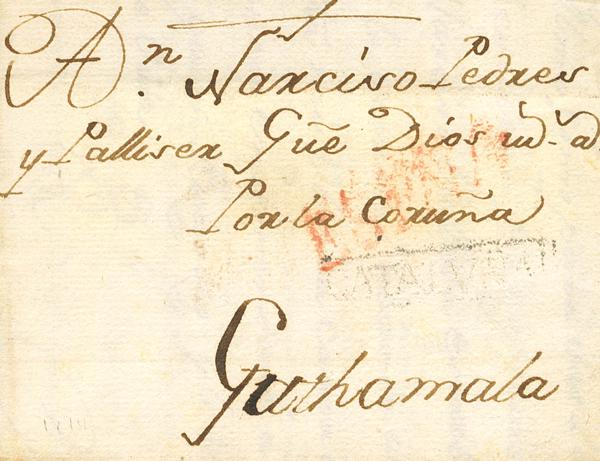 A Dn. Narciso Pedres
y Palliser Güe Dios md. ad.
Por la Coruña
CATALUÑA
Guthamala